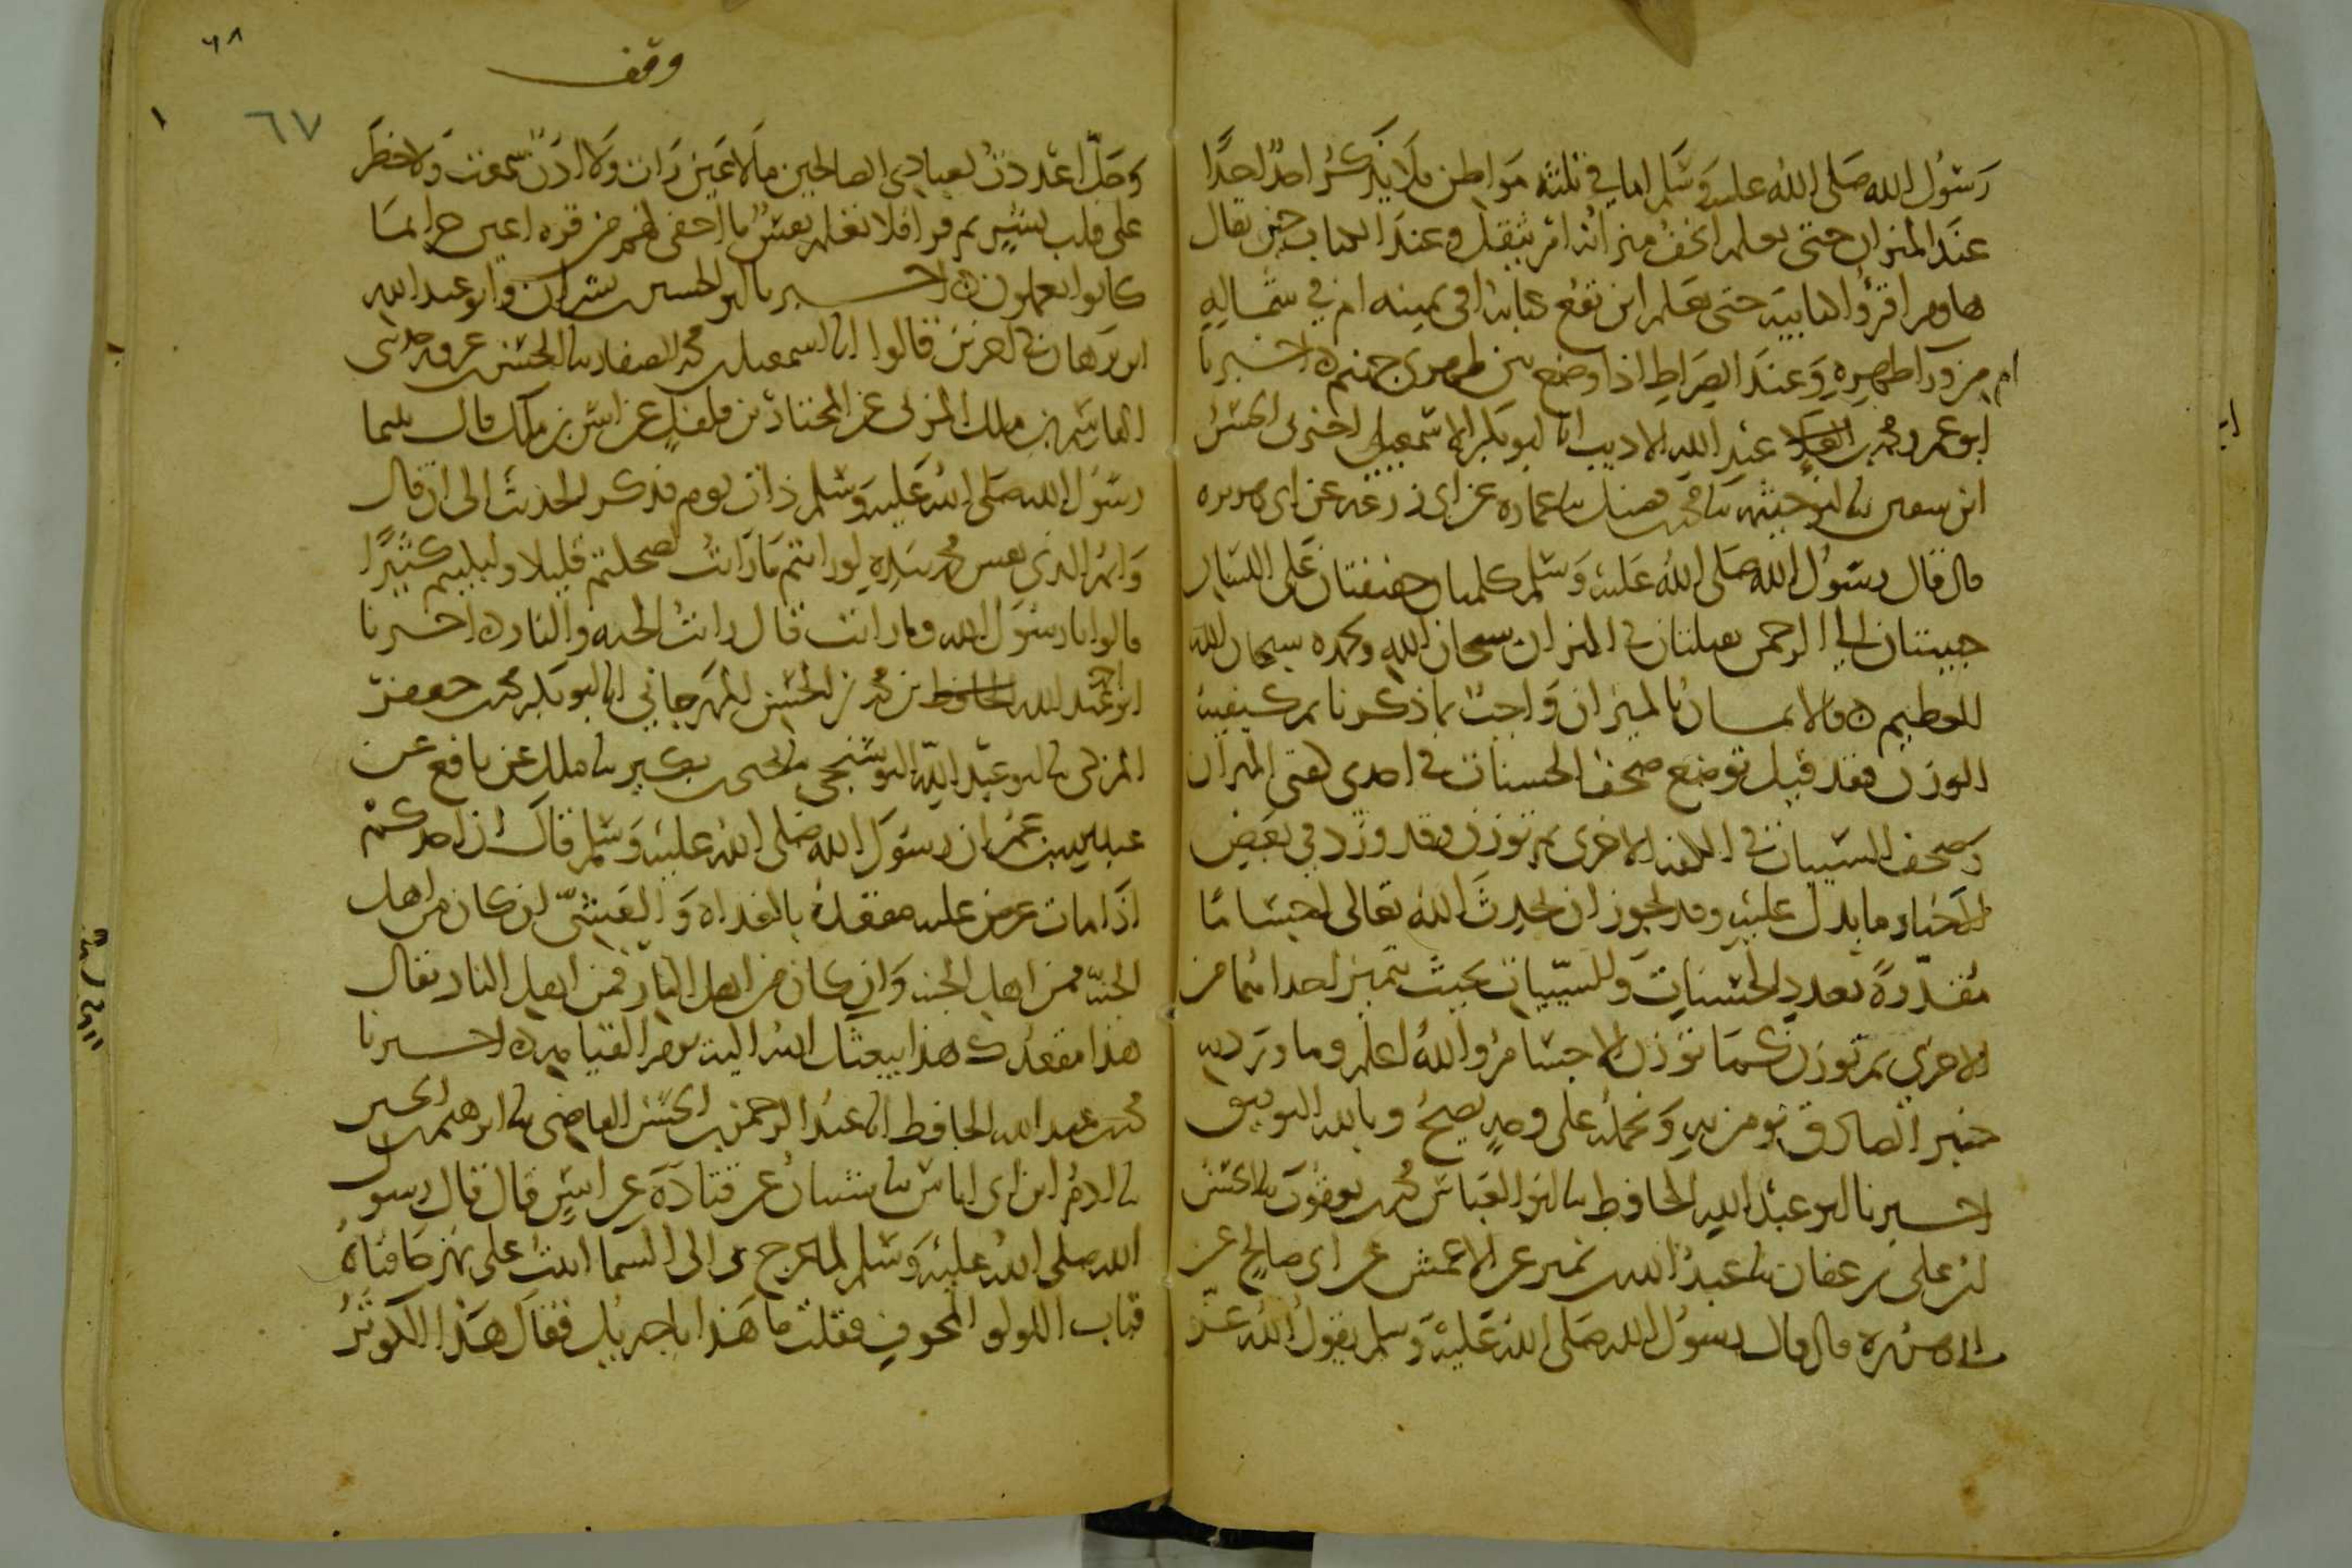 رسول الله صلى الله عليه وسلم اما في ثلثة مواطن فلا يذكر احد احدا
عند الميزان حتى يعلم اتخف ميزانه ام تثقل وعند الكتاب حين يقال
هاوم اقرؤا كتابيه حتى يعلم اين تقع كتابه افي يمينه ام في شماله
ام من ورا ظهره وعند الصراط اذا وضع بين ظهري جهنم ه اخبرنا
ابو عمرو محمد بن عبد الله الاديب انا ابو بكر الاسمعيلي اخبرني الحسن
ابن سفين نا ابو خيثمة نا محمد بن فضيل نا عمارة عن ابي زرعة عن ابي هريرة
قال قال رسول الله صلى الله عليه وسلم كلمتان خفيفتان على اللسان
حبيبتان الى الرحمن ثقيلتان في الميزان سبحان الله وبحمده سبحان الله
العظيم ه فالايمان بالميزان واجب بما ذكرنا ثم كيفية
الوزن فقد قيل توضع صحف الحسنات في احدى كفتي الميزان
وصحف السييات في الكفة الاخرى ثم توزن وقد ورد في بعض
الاخبار ما يدل عليه وقد يجوز ان يحدث الله تعالى اجساما
مقدرة بعدد الحسنات والسييات بحيث يتميز احداهما من
الاخرى ثم توزن كما توزن الاجسام والله اعلم وما ورد به
خبر الصادق نومن به ونحمله على وجه يصح وبالله التوفيق
اخبرنا ابو عبد الله الحافظ نا ابو العباس محمد بن يعقوب نا الحسن
بن علي بن عفان نا عبد الله بن نمير عن الاعمش عن ابي صالح عن
ابي هريرة قال قال رسول الله صلى الله عليه وسلم يقول الله عز
وقف
٦٨
٦٧
١
وجل اعددت لعبادي الصالحين ما لا عين رات ولا اذن سمعت ولا خطر
على قلب بشر ثم قرا فلا تعلم نفس ما اخفى لهم من قرة اعين جزا بما
كانوا يعملون ه اخبرنا ابو الحسين بن بشران وابو عبد الله
ابن برهان في اخرين قالوا انا اسمعيل بن محمد الصفار نا الحسن بن عرفة حدثني
القاسم بن ملك المزني عن المختار بن فلفل عن انس بن ملك قال بينما
رسول الله صلى الله عليه وسلم ذات يوم فذكر الحديث الى ان قال
وايم الذي نفس محمد بيده لو رايتم ما رايت لضحكتم قليلا ولبكيتم كثيرا
قالوا يا رسول الله وما رايت قال رايت الجنة والنار ه اخبرنا
ابو احمد عبد الله بن محمد بن الحسن المهرجاني انا ابو بكر محمد بن جعفر
المزكي نا ابو عبد الله البوشنجي نا يحيى بن بكير نا ملك عن نافع عن
عبد الله بن عمر ان رسول الله صلى الله عليه وسلم قال ان احدكم
اذا مات عرض عليه مقعده بالغداة والعشي ان كان من اهل
الجنة فمن اهل الجنة وان كان من اهل النار فمن اهل النار يقال
هذا مقعدك هذا يبعثك الله اليه يوم القيامة ه اخبرنا
محمد بن عبد الله الحافظ انا عبد الرحمن بن الحسن القاضي نا ابرهيم بن الحسين
نا ادم ابن ابي اياس نا شيبان عن قتادة عن انس قال قال رسول
الله صلى الله عليه وسلم لما عرج بي الى السما اتيت على نهر حافتاه
قباب اللولو المجوف فقلت ما هذا يا جبريل فقال هذا الكوثر